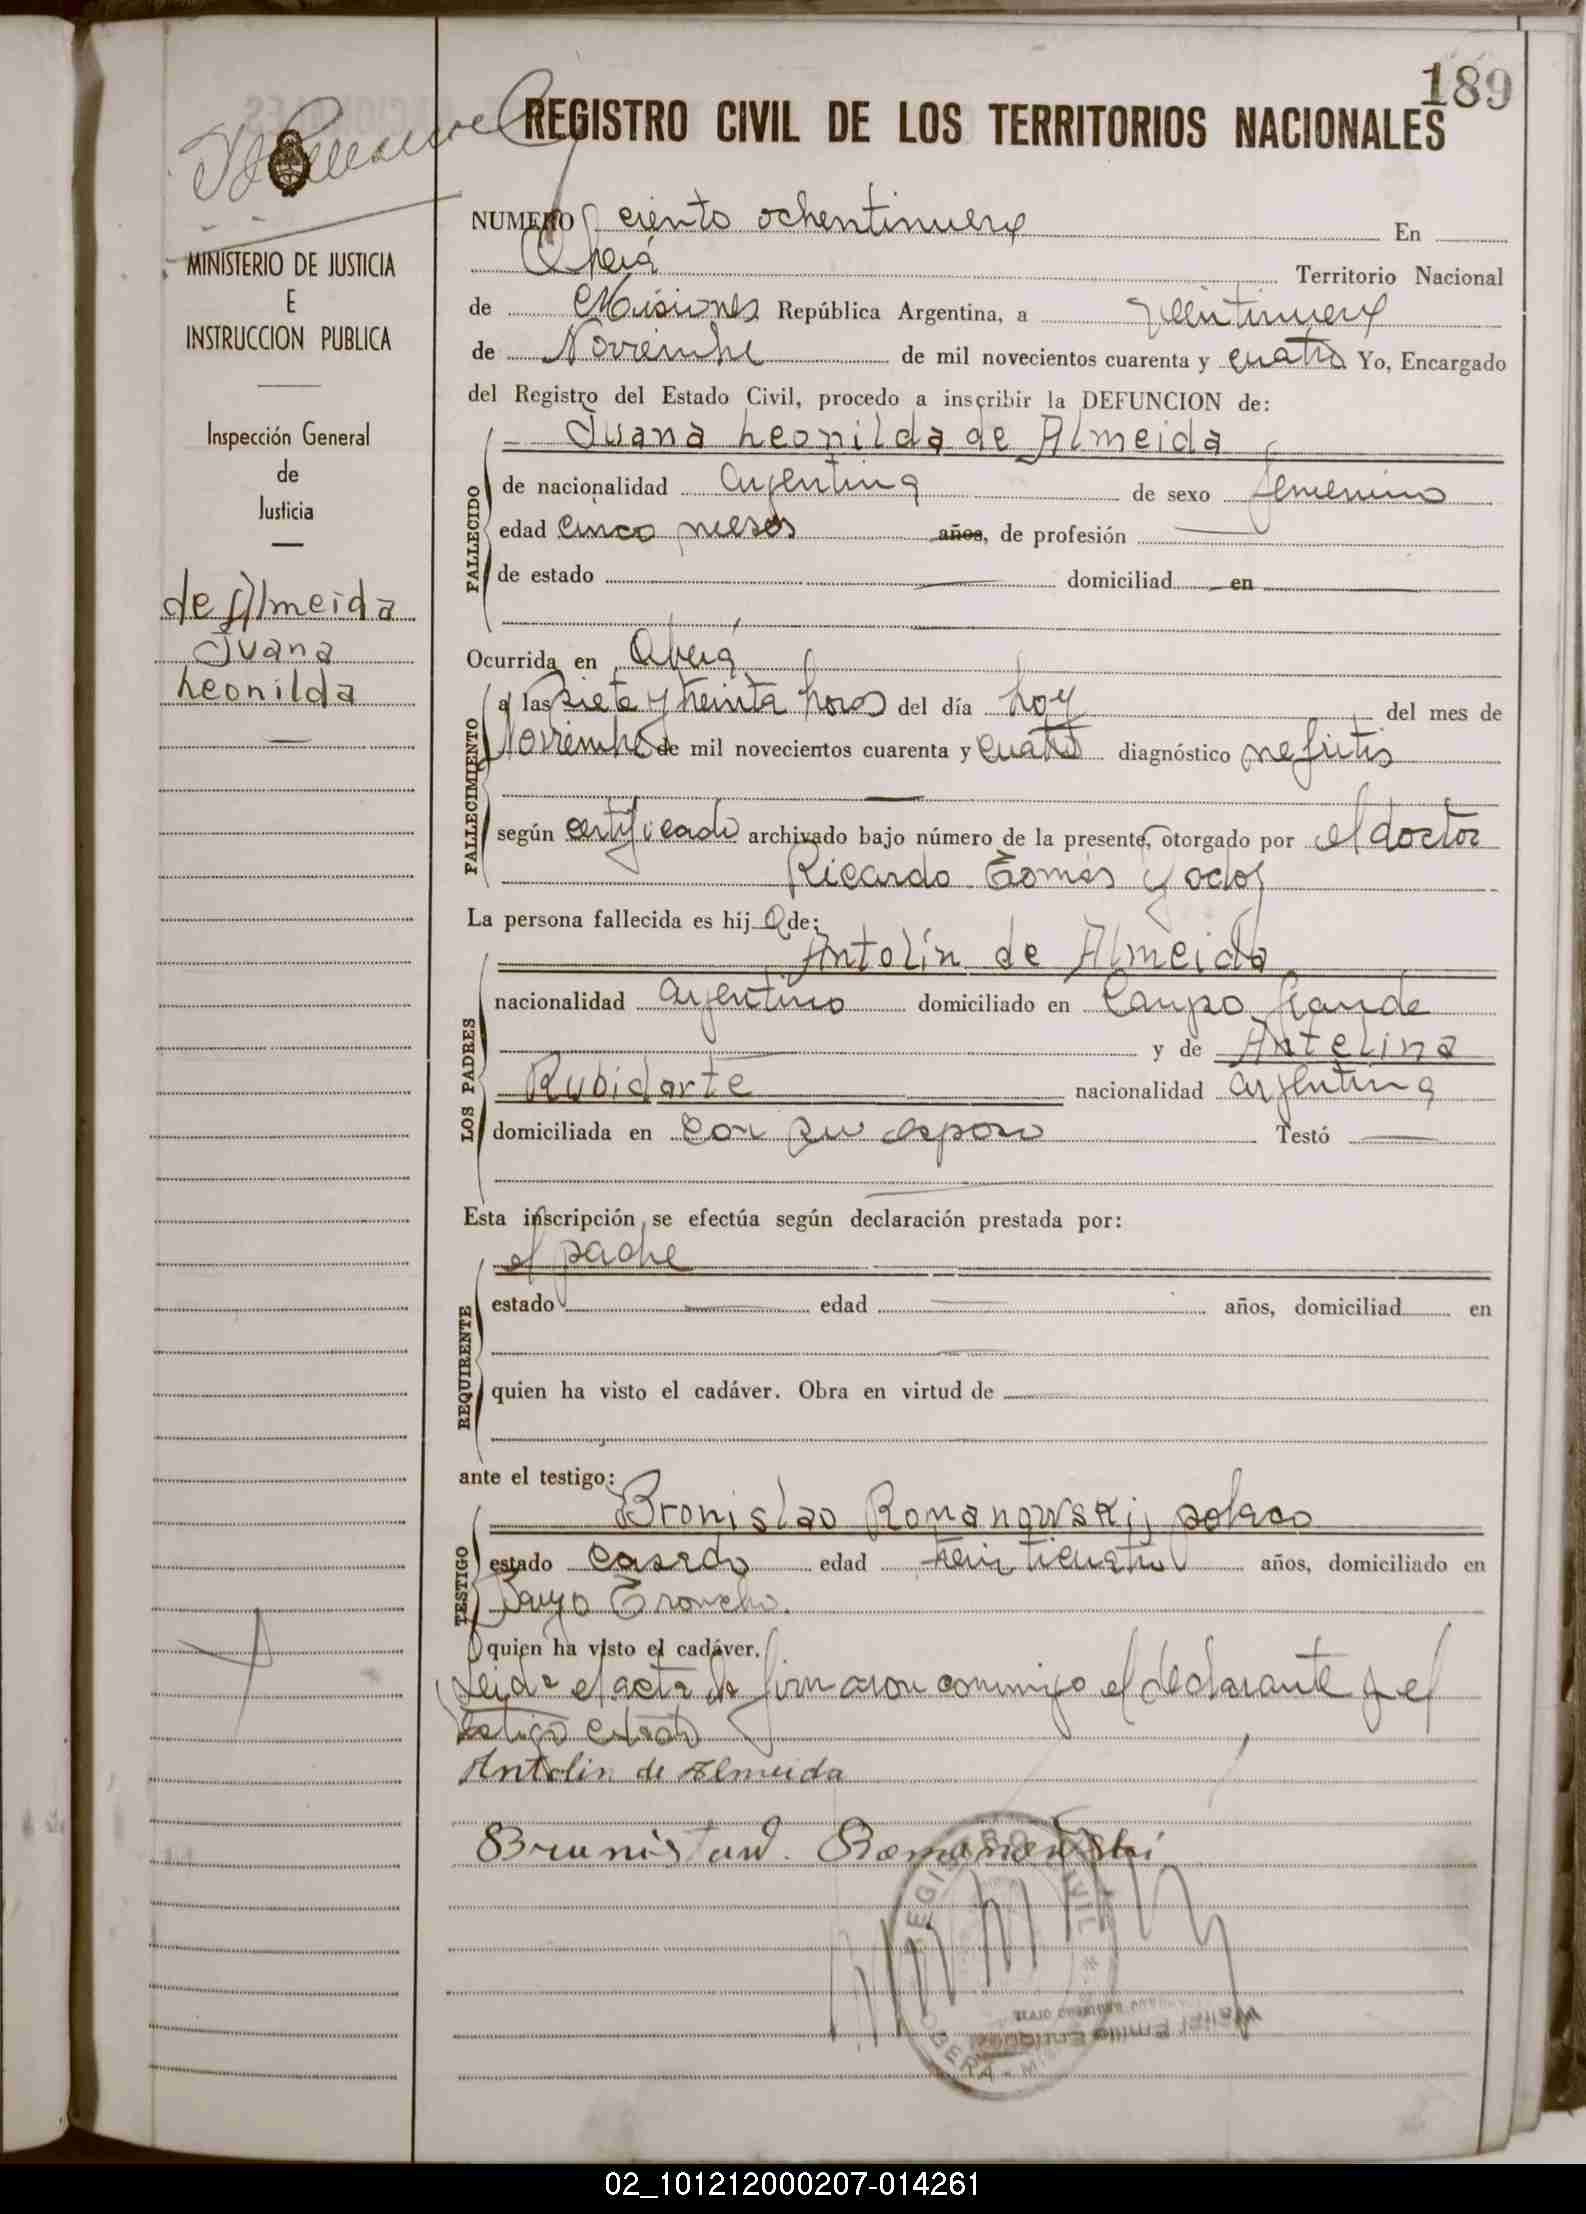 189
REGISTRO CIVIL DE LOS TERRITORIOS NACIONALES
MINISTERIO DE JUSTICIA
E
INSTRUCCION PUBLICA
Inspección General
de
Justicia
de Almeida
Juana
Leonilda
NUMERO ciento ochentinueve En
Oberá Territorio Nacional
de Misiones República Argentina, a veintinueve
de Noviembre de mil novecientos cuarenta y cuatro Yo, Encargado
del Registro del Estado Civil, procedo a inscribir la DEFUNCION de:
Juana Leonilda de Almeida
FALLECIDO
de nacionalidad argentina de sexo femenino
edad cinco meses años, de profesión
de estado domiciliad en
Ocurrida en Oberá
FALLECIMIENTO
a las siete y treinta horas del día hoy del mes de
Noviembre de mil novecientos cuarenta y cuatro diagnóstico nefritis
según certificado archivado bajo número de la presente, otorgado por el doctor
Ricardo Tomás
La persona fallecida es hija de:
LOS PADRES
Antolín de Almeida
nacionalidad argentino domiciliado en Campo Grande
y de Antelina
Rubidarte nacionalidad argentina
domiciliada en con su esposo Testó
Esta inscripción se efectúa según declaración prestada por:
REQUIRENTE
el padre
estado edad años, domiciliad en
quien ha visto el cadáver. Obra en virtud de
ante el testigo:
TESTIGO
Bronislao Romanowski, polaco
estado casado edad treinticuatro años, domiciliado en
Bayo Troncho.
quien ha visto el cadáver.
Leida el acta la firmaron conmigo el declarante y el
testigo citado
Antolin de Almeida
Romanowski
REGISTRO CIVIL
OBERÁ
02_101212000207-014261